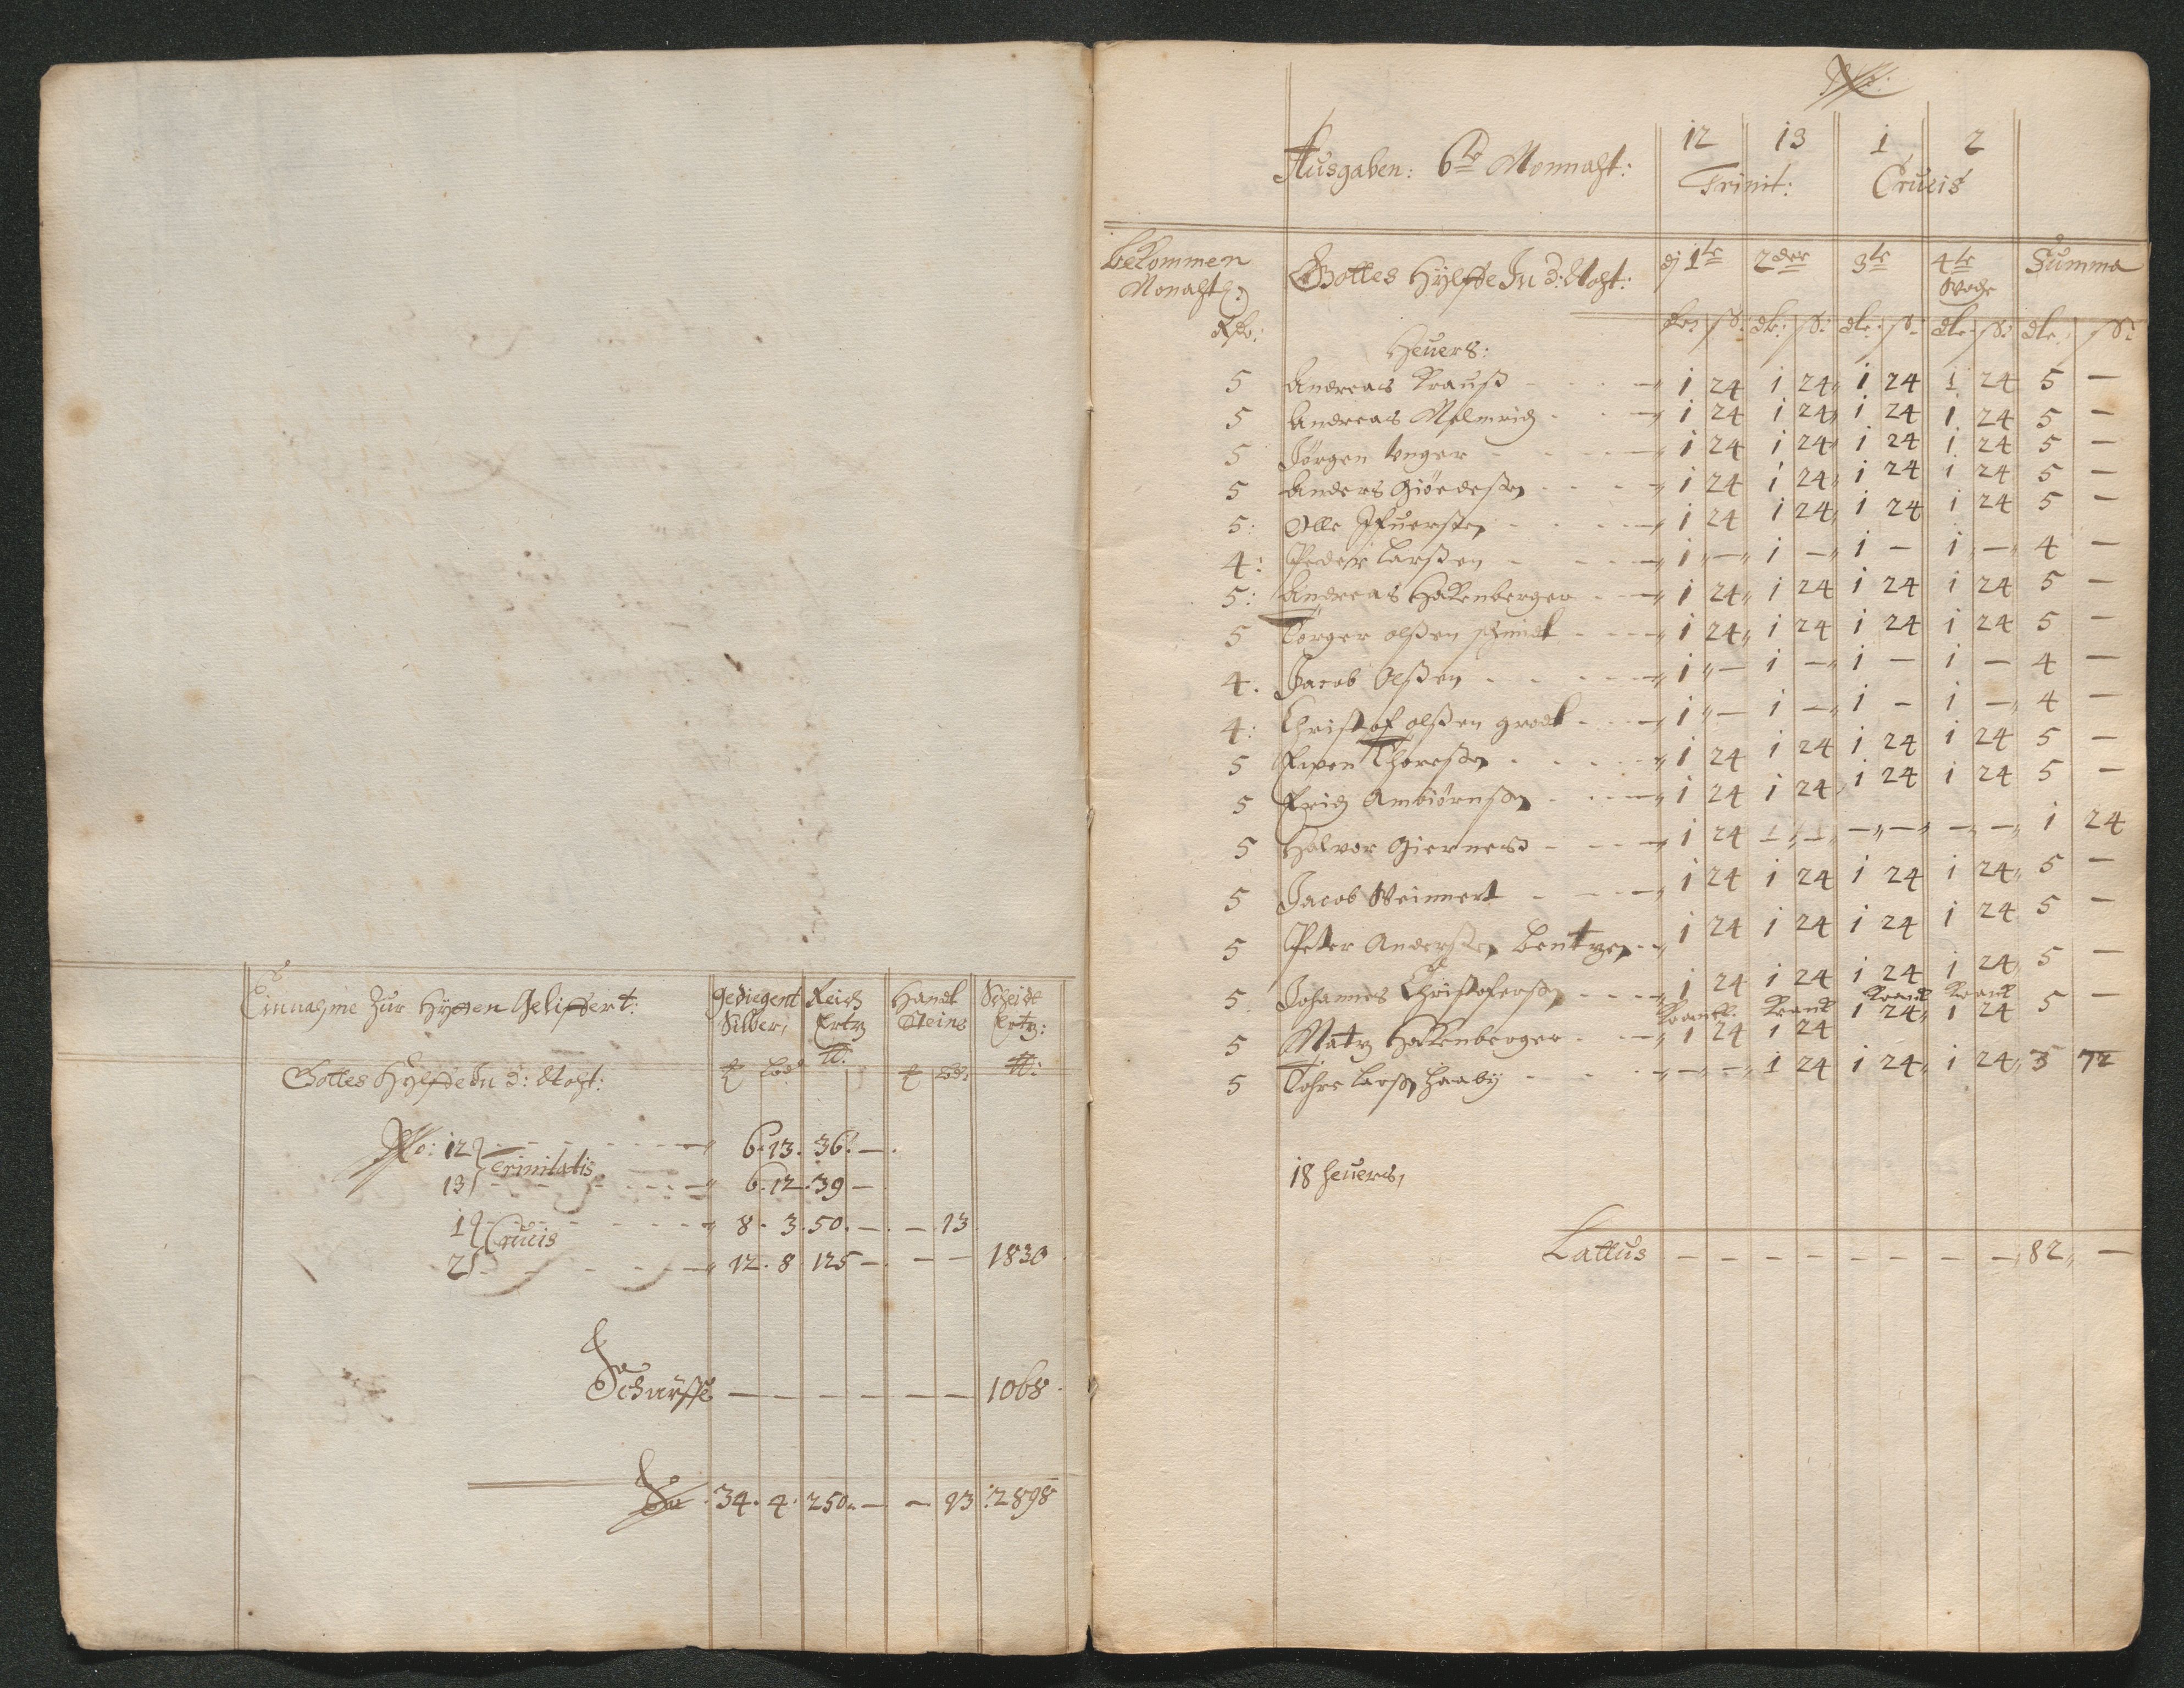 Einnahme zur Hytten Geliffert:
Gediegent Silber,
Reich Ertz
Handt Steine
Scheide Ertz:
Gottes Hylffe In d: Noht:
No: 12 Trinitatis 6 · 13 · 36 · —
13 6 · 12 · 39 —
1 Crucis 8 · 3 · 50 · — — 13
2 12 · 8 125 — — — 1830
Schürffe — — — — — — 1068
Sa 34 · 4 · 250 · — — 13 2898
12 13 1 2
Ausgaben: 6te Monnaht: Trinit: Crucis
Bekommen Monahtl: Gottes Hylffe In d: Noht: dj 1te 2der 3te 4te Woche Summa
Rdr: dlr: ß: dlr: ß: dlr: ß: dlr: ß: dlr: ß:
Heuers:
5 Andreas Krauß 1 24 1 24 1 24 1 24 5 —
5 Andreas Melmrich 1 24 1 24 1 24 1 24 5 —
5 Jörgen Unger 1 24 1 24 1 24 1 24 5 —
5 Anders Giöedeßen 1 24 1 24 1 24 1 24 5 —
5: Olle Ifuerßen 1 24 1 24 1 24 1 24 5 —
4: Peder Larßen 1 — 1 — 1 — 1 — 4 —
5: Andreas Hakenberger 1 24 1 24 1 24 1 24 5 —
5 Torger olßen schmidt 1 24 1 24 1 24 1 24 5 —
4. Jacob Olßen 1 — 1 — 1 — 1 — 4 —
4: Christof olßen 1 — 1 — 1 — 1 — 4 —
5 Thoreßen 1 24 1 24 1 24 1 24 5 —
5 Erich Ambiörnßen 1 24 1 24 1 24 1 24 5 —
5 Halvor 1 24 — — — — — — 1 24
5 Jacob Weinnert 1 24 1 24 1 24 1 24 5 —
5 Peter Anderßen Bentzen 1 24 1 24 1 24 1 24 5 —
5 Johannes Christoferßen 1 24 1 24 1 24 1 24 5 —
Krank Krank Krank Krank
5 Matz Hakenberger 1 24 1 24 1 24 1 24 5 —
5 Tohre Larßen Haaby — — 1 24 1 24 1 24 3 72
18 heuers,
Lattus — — — — — — — — 82 —